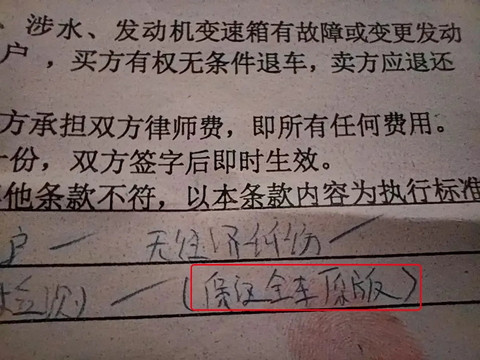 、涉水、发动机变速箱有故障或变更发动
户，买方有权无条件退车，卖方应退还
方承担双方律师费，即所有任何费用。
份，双方签字后即时生效。
他条款不符，以本条款内容为执行标准
户 — 无经济纠纷 —
— (保证全车原版)